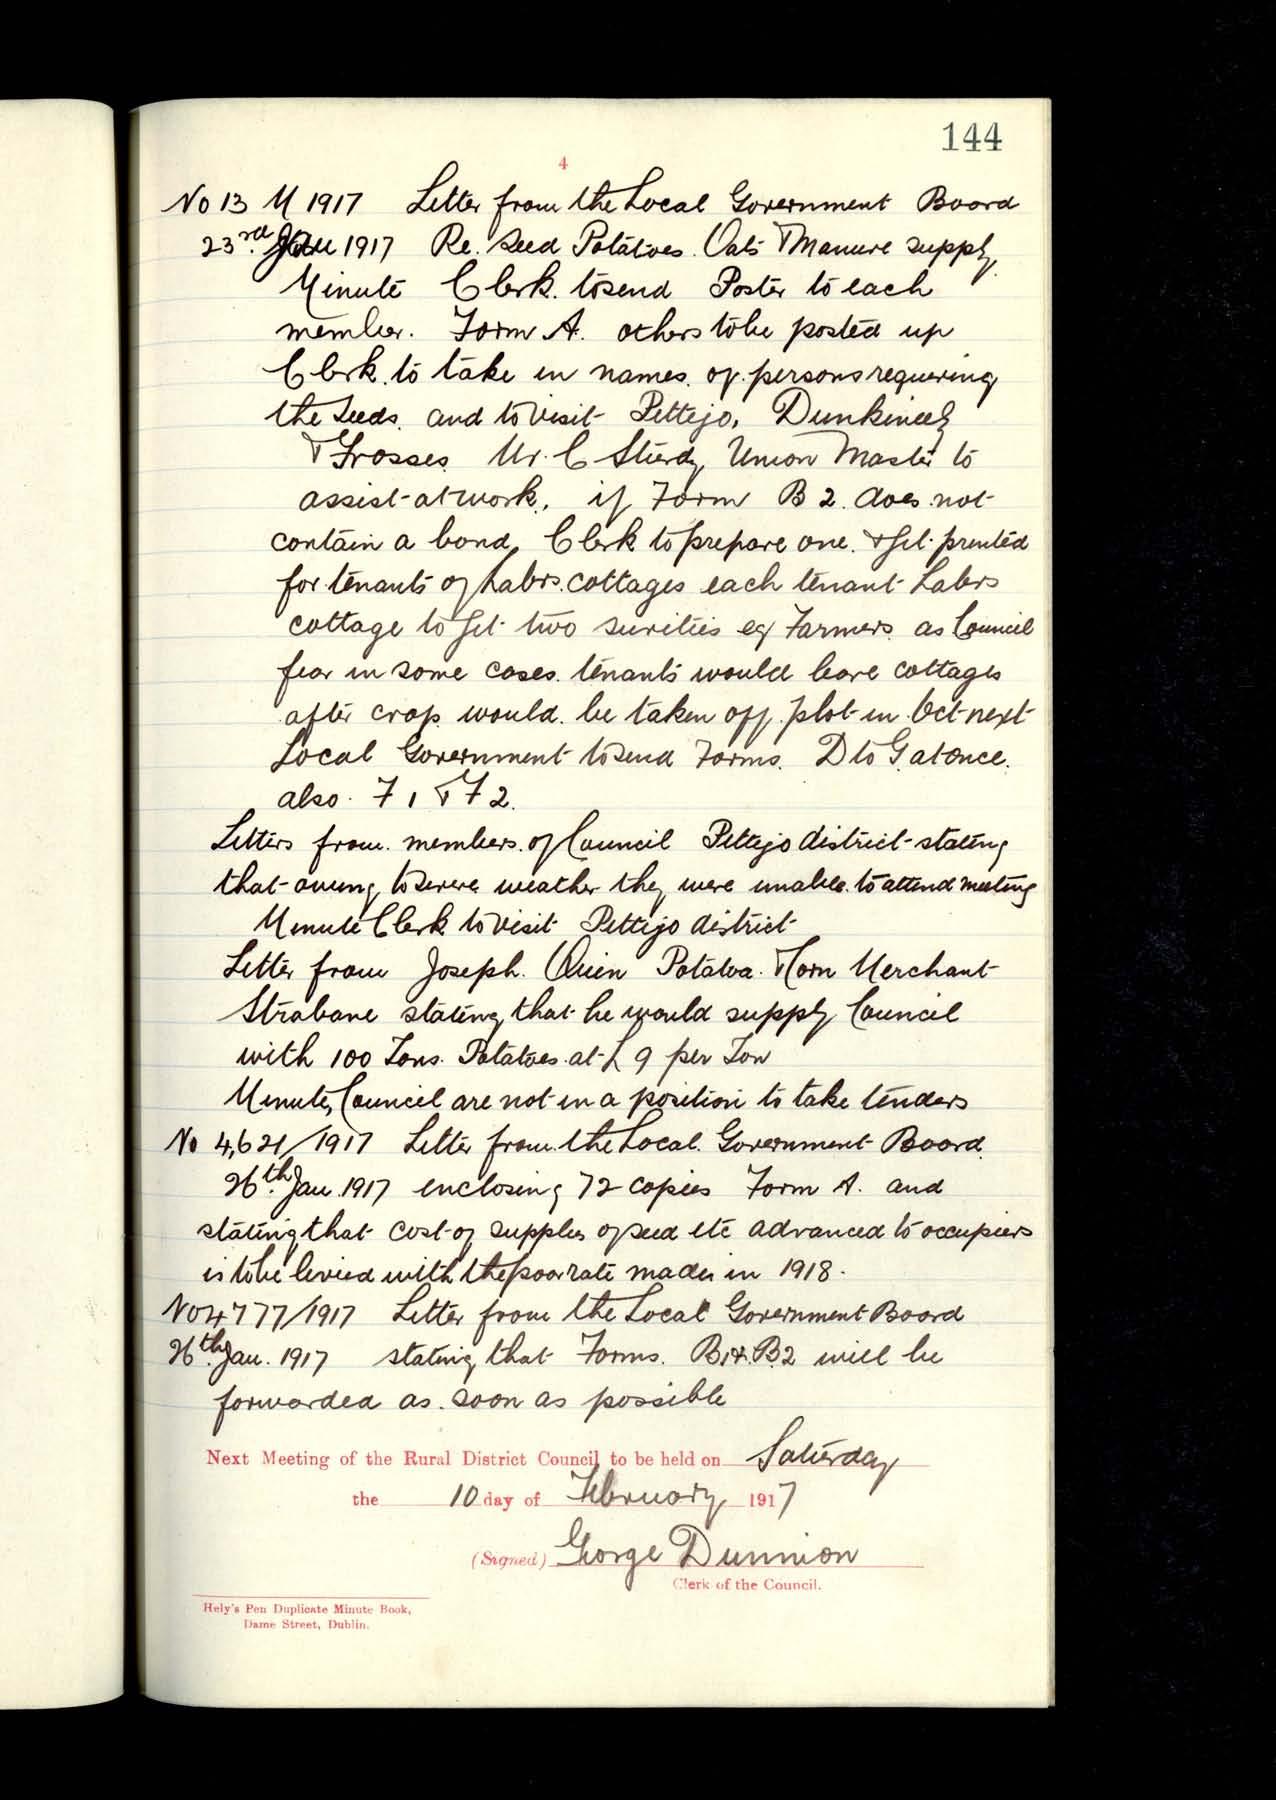 144
4
No 13 M 1917 Letter from the Local Government Board
23rd Jan 1917 Re. Seed Potatoes. Oats & Manure supply.
Minute Clerk. to send Poster to each
member. Form A. others to be posted up
Clerk. to take in names. of persons requering
the seeds. and to visit Pettigo, Dunkineely
& Frosses. Mr. C Sturdy, Union Master to
assist at work, if Form B 2. does not
contain a bond, Clerk to prepare one. & get printed
for tenants of Labrs. cottages each tenant Labrs
cottage to get two surities eg Farmers as Council
fear in some cases. tenants would leave cottages
after crop would. be taken off plot in Oct next
Local Government to send Forms. D to G. at once.
also. F 1 & F 2.
Letters from members. of Council Pettigo district stating
that owing to severe weather they were unable to attend meeting
Minute Clerk to visit Pettigo district
Letter from Joseph. Quin Potatoe. & Corn Merchant
Strabane stating that he would supply Council
with 100 Tons. Potatoes at £ 9 per Ton
Minute, Council are not in a position to take tenders
No 4,621/1917 Letter from the Local. Government Board.
26th. Jan. 1917 enclosing 72 copies Form A. and
stating that cost of supplies of seed etc advanced to occupiers
is to be levied with the poor rate made in 1918.
No 4777/1917 Letter from the Local Government Board
26th. Jan. 1917 stating that Forms. B1 & B2 will be
forwarded as. soon as possible
Next Meeting of the Rural District Council to be held on Saturday
the 10 day of February 1917
(Signed) George Dunnion
Clerk of the Council.
Hely's Pen Duplicate Minute Book,
Dame Street, Dublin.